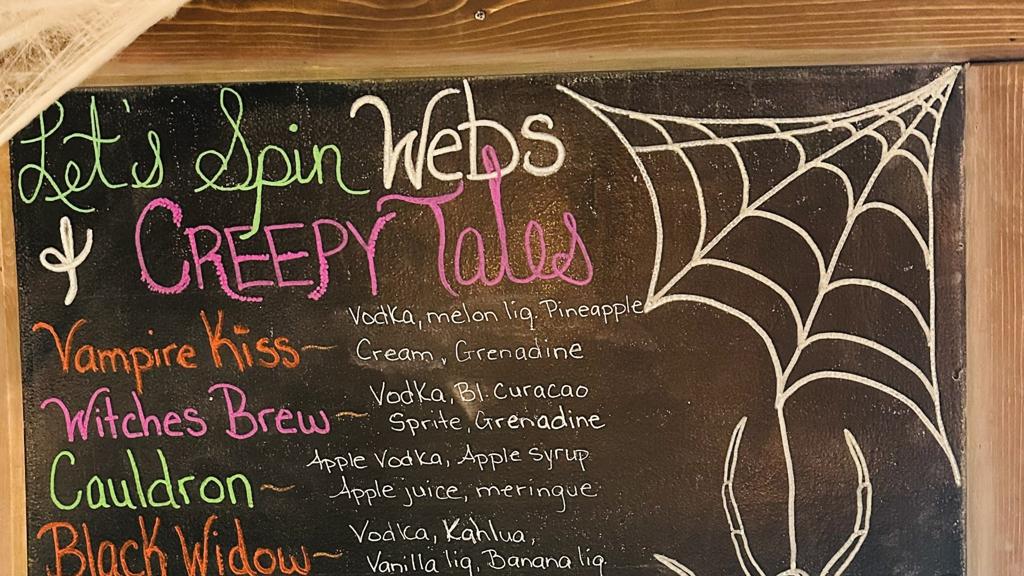 Let's Spin Webs
& CREEPY Tales
Vampire Kiss~ Vodka, melon liq. Pineapple
Cream, Grenadine
Witches Brew~ Vodka, Bl. Curacao
Sprite, Grenadine
Cauldron~ Apple Vodka, Apple syrup
Apple juice, meringue
Black Widow~ Vodka, Kahlua,
Vanilla liq, Banana liq.